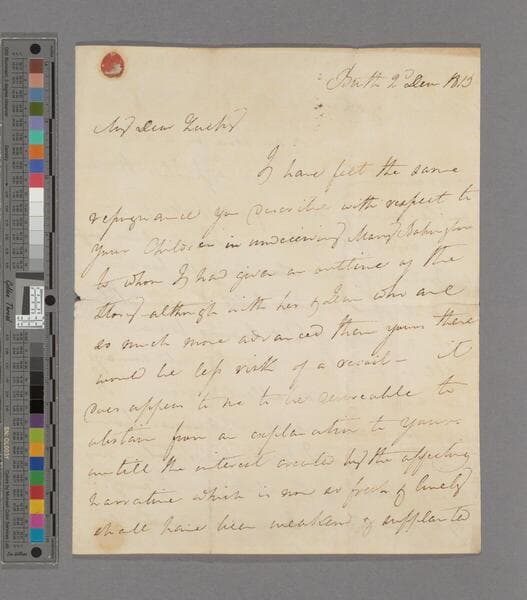 Bath 2d Decr 1813
My Dear Zachy
I have felt the same
repugnance you describe with respect to
your Children in undeceiving Mary Babington
to whom I had given an outline of the
Story although with her & Jean who are
so much more advanced than yours there
would be less risk of a recoil - it
does appear to me to be reasonable to
abstain from an explanation to yours
untill the interest created by the affecting
narrative which is now so fresh & lively
shall have been weakend & supplanted